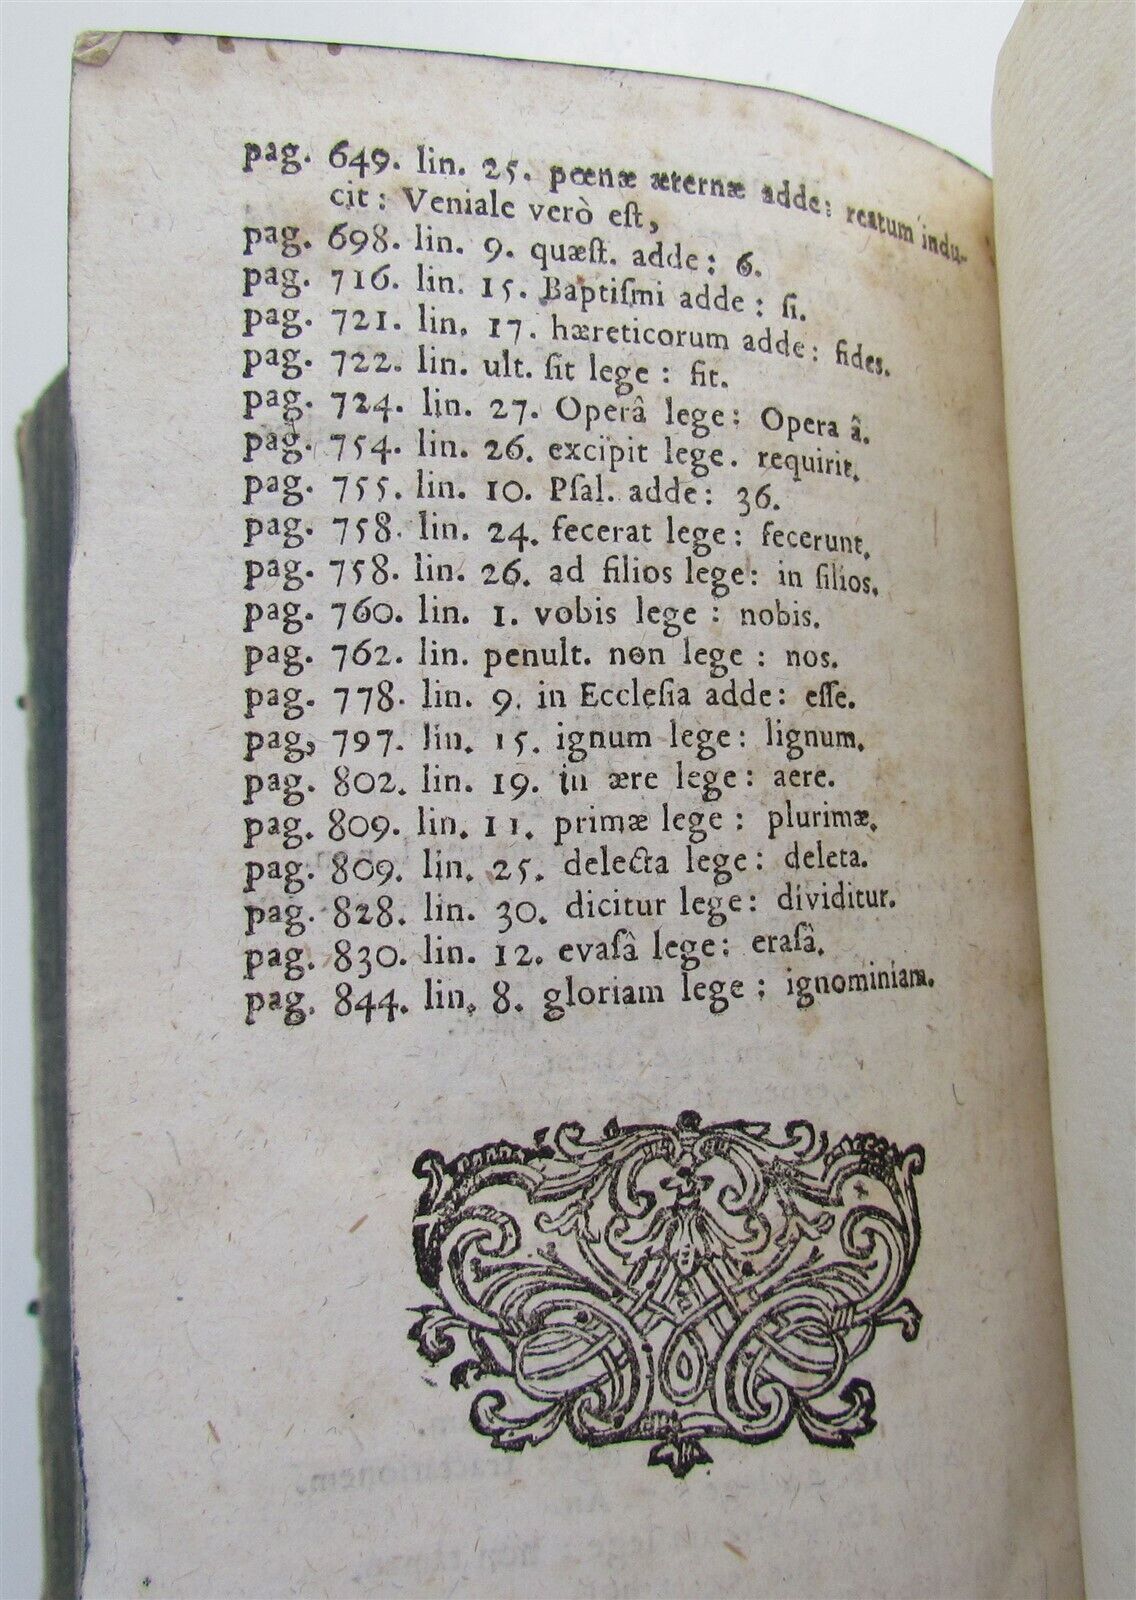 pag. 649. lin. 25. pœnæ æternæ adde: reatum indu-
cit: Veniale verò eſt,
pag. 698. lin. 9. quæſt. adde: 6.
pag. 716. lin. 15. Baptiſmi adde: ſi.
pag. 721. lin. 17. hæreticorum adde: fides.
pag. 722. lin. ult. ſit lege: fit.
pag. 724. lin. 27. Operâ lege: Opera â.
pag. 754. lin. 26. excipit lege. requirit.
pag. 755. lin. 10. Pſal. adde: 36.
pag. 758. lin. 24. fecerat lege: fecerunt.
pag. 758. lin. 26. ad filios lege: in filios.
pag. 760. lin. 1. vobis lege: nobis.
pag. 762. lin. penult. non lege: nos.
pag. 778. lin. 9. in Eccleſia adde: eſſe.
pag, 797. lin. 15. ignum lege: lignum.
pag. 802. lin. 19. in ære lege: aere.
pag. 809. lin. 11. primæ lege: plurimæ.
pag. 809. lin. 25. delecta lege: deleta.
pag. 828. lin. 30. dicitur lege: dividitur.
pag. 830. lin. 12. evaſâ lege: eraſâ.
pag. 844. lin. 8. gloriam lege: ignominiam.